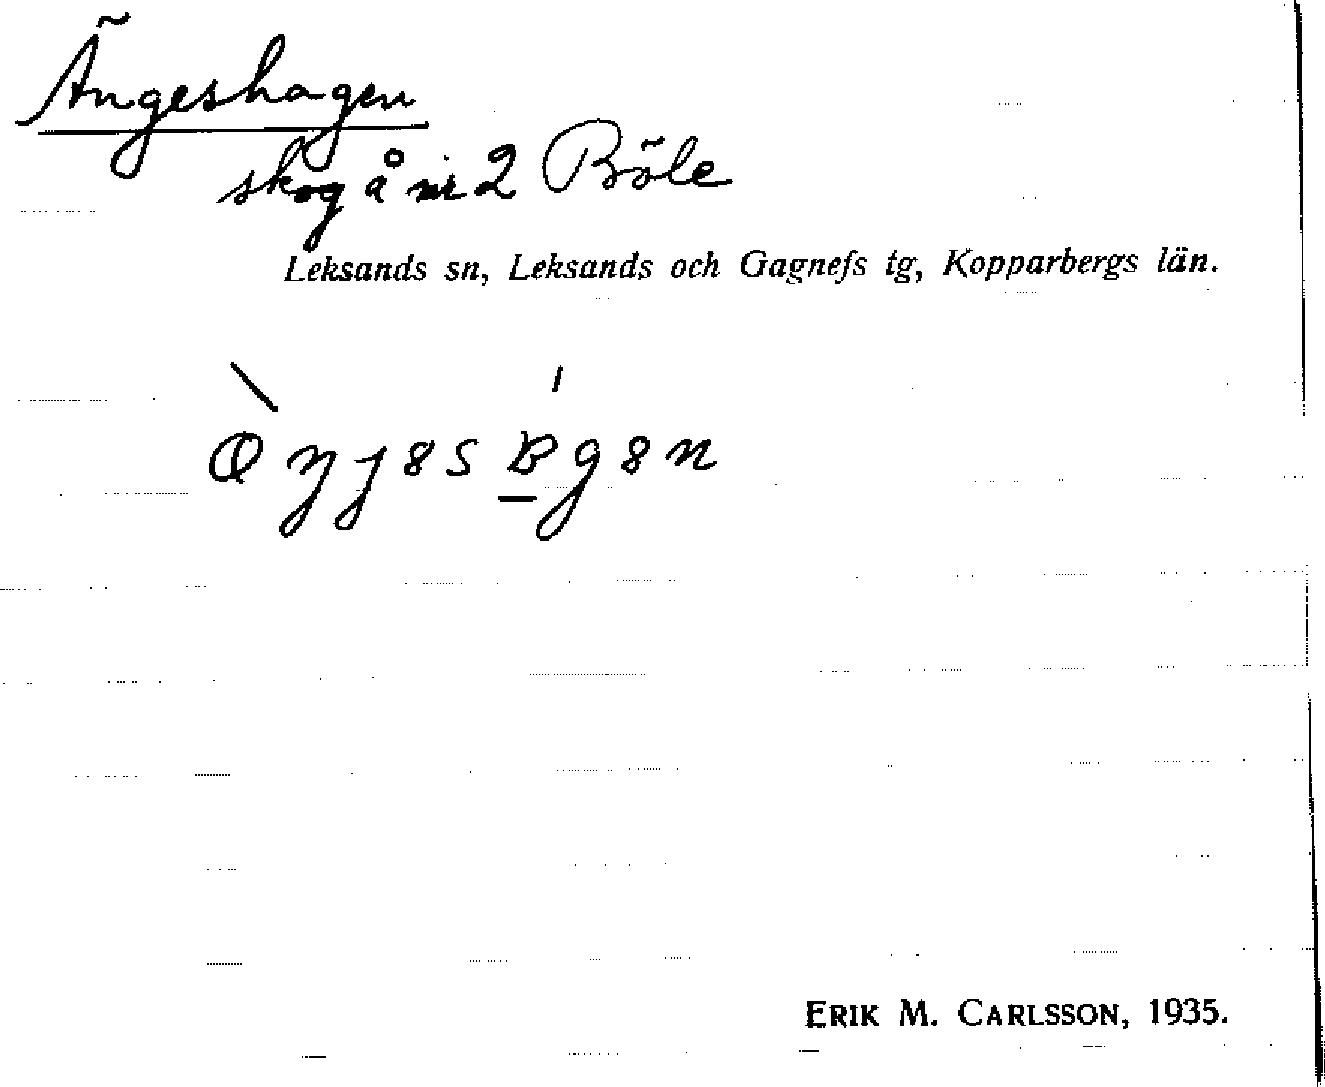 Ängeshagen
skog å nr 2 Böle
Leksands sn, Leksands och Gagnefs tg, Kopparbergs län.
ERIK M. CARLSSON, 1935.